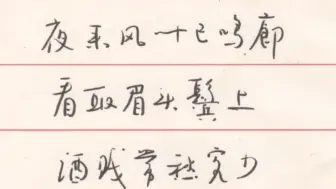 夜来风叶已鸣廊
看取眉头鬓上
酒贱常愁客少